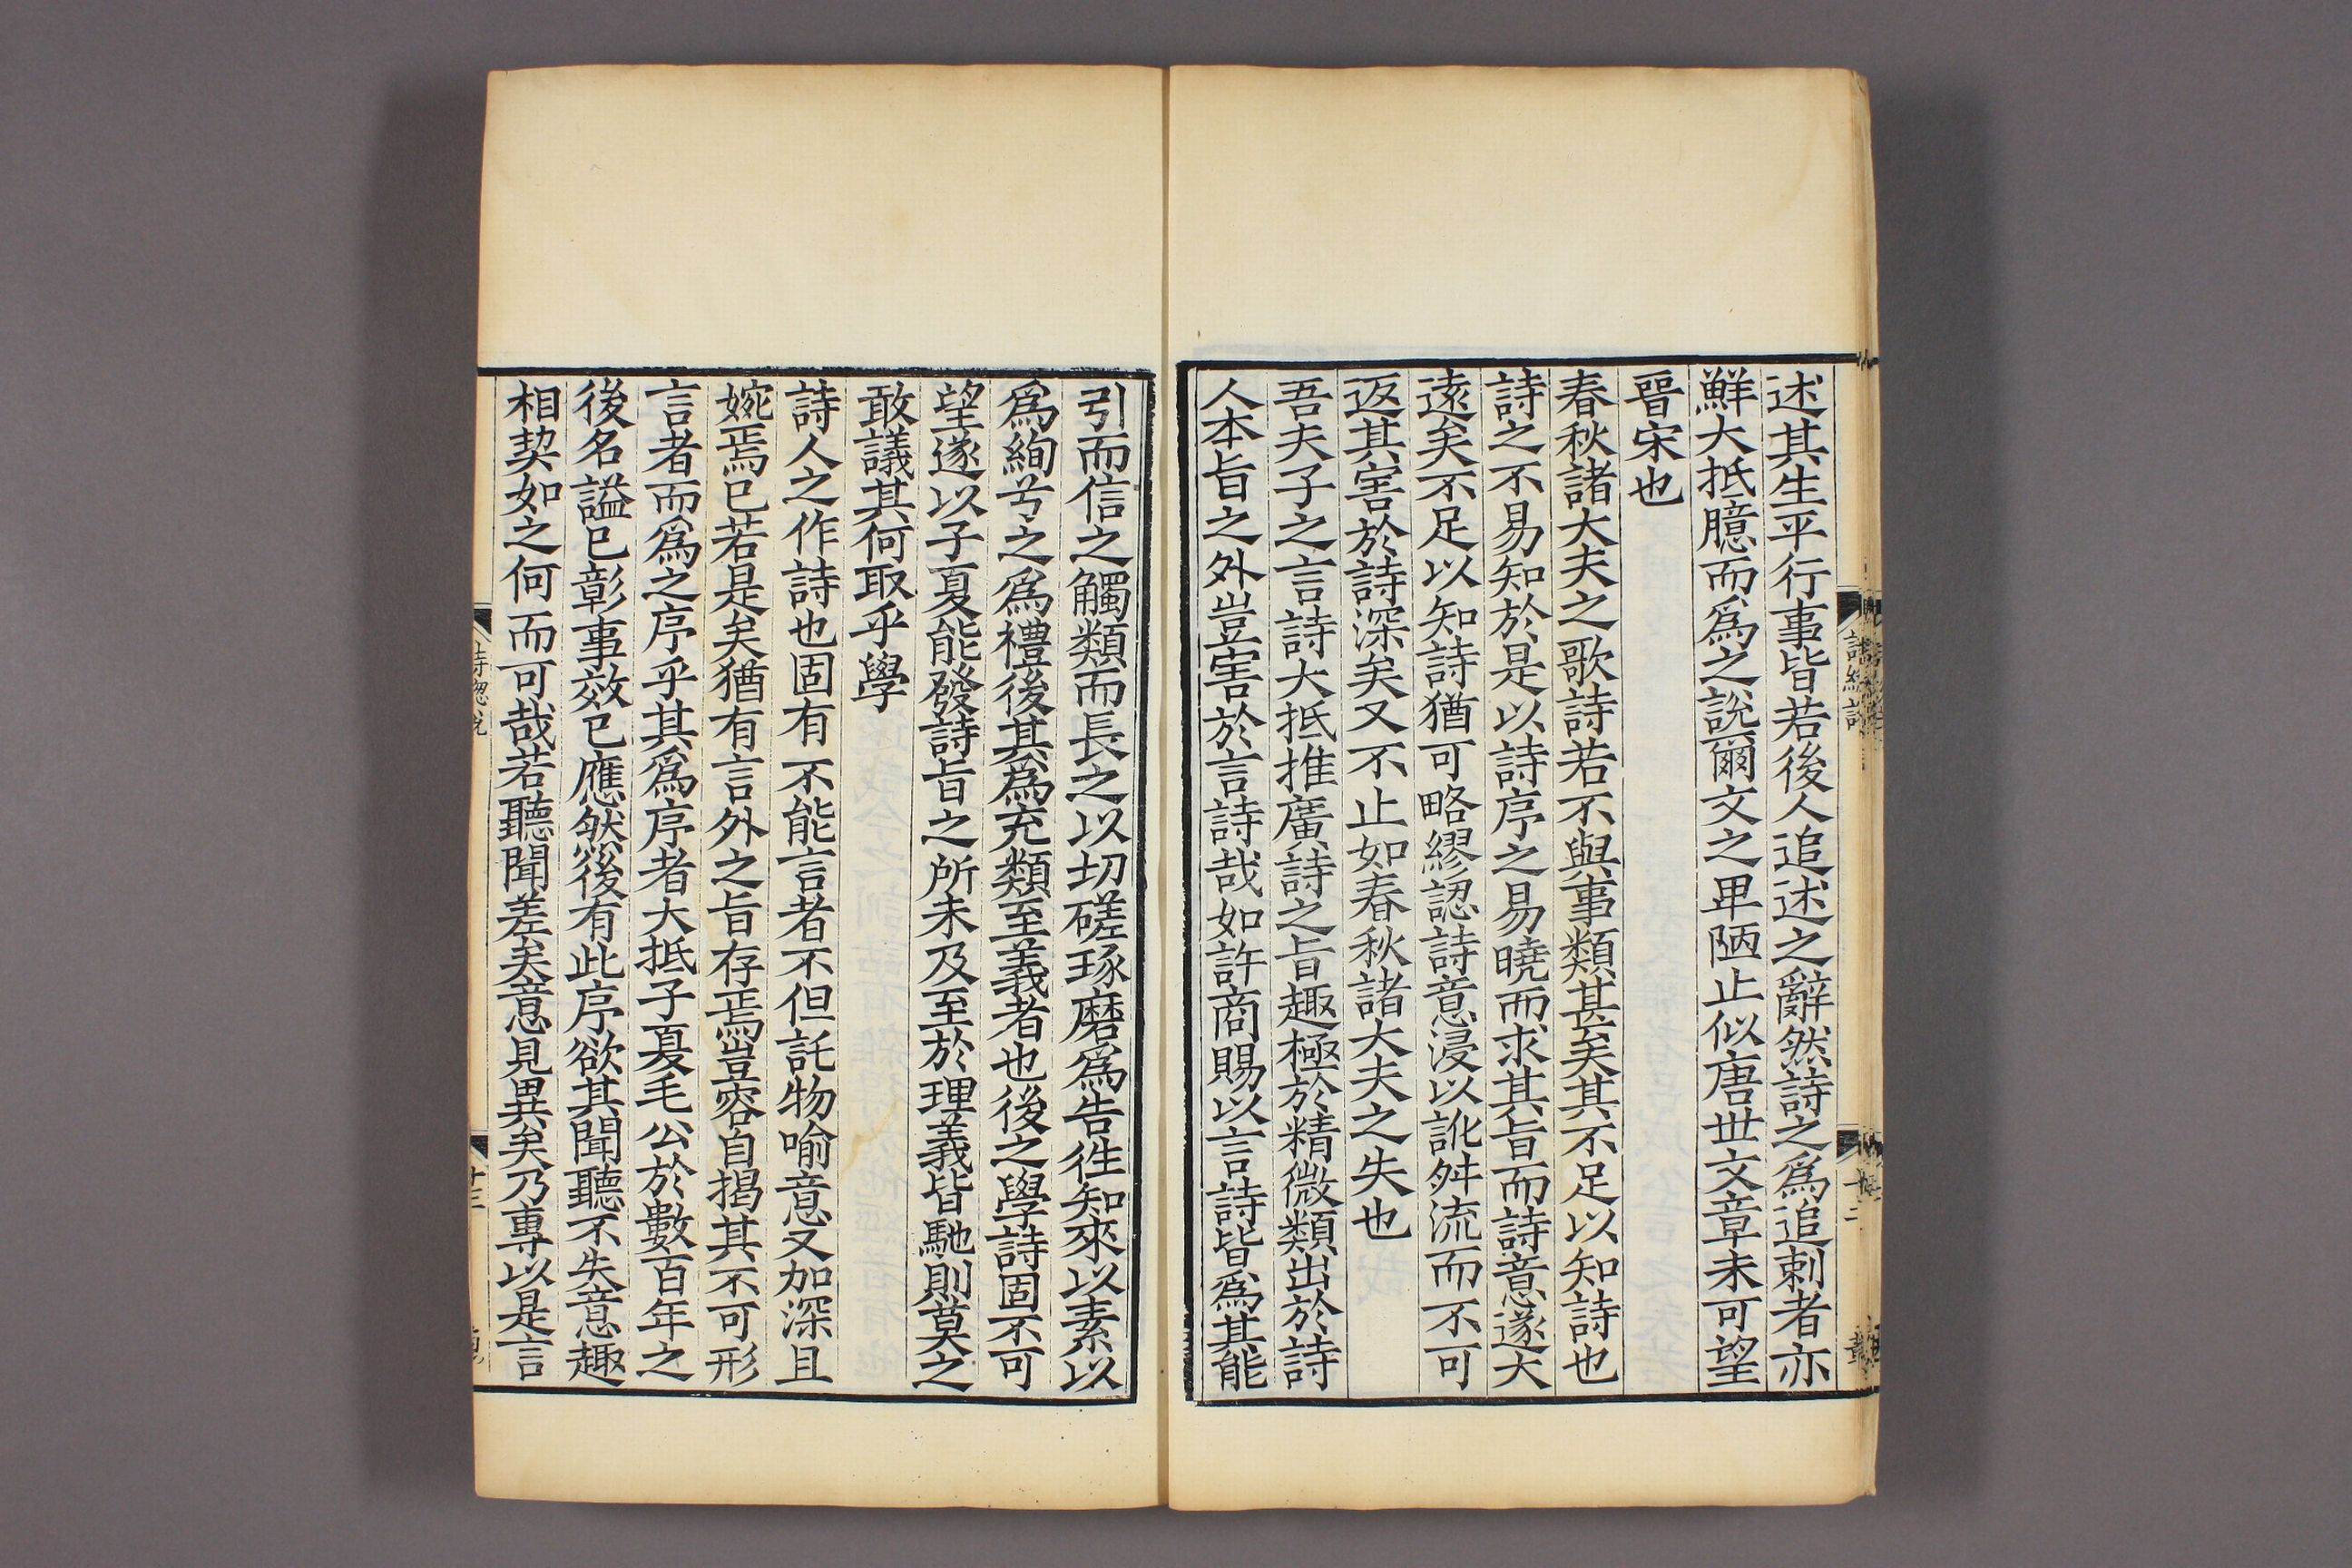 述其生平行事皆若後人追述之辭然詩之爲追刺者亦
鮮大抵臆而爲之說爾文之卑陋止似唐世文章未可望
晉宋也
春秋諸大夫之歌詩若不與事類甚矣其不足以知詩也
詩之不易知於是以詩序之易曉而求其旨而詩意遂大
遠矣不足以知詩猶可略繆認詩意浸以訛舛流而不可
返其害於詩深矣又不止如春秋諸大夫之失也
吾夫子之言詩大抵推廣詩之旨趣極於精微類出於詩
人本旨之外豈害於言詩哉如許商賜以言詩皆爲其能
引而信之觸類而長之以切磋琢磨爲告徃知來以素以
爲絢兮之爲禮後其爲充類至義者也後之學詩固不可
望遂以子夏能發詩旨之所未及至於理義皆馳則莫之
敢議其何取乎學
詩人之作詩也固有不能言者不但託物喻意又加深且
婉焉已若是矣猶有言外之旨存焉豈容自揭其不可形
言者而爲之序乎其爲序者大抵子夏毛公於數百年之
後名謚已彰事效已應然後有此序欲其聞聽不失意趣
相契如之何而可哉若聽聞差矣意見異矣乃專以是言
詩總說
十三